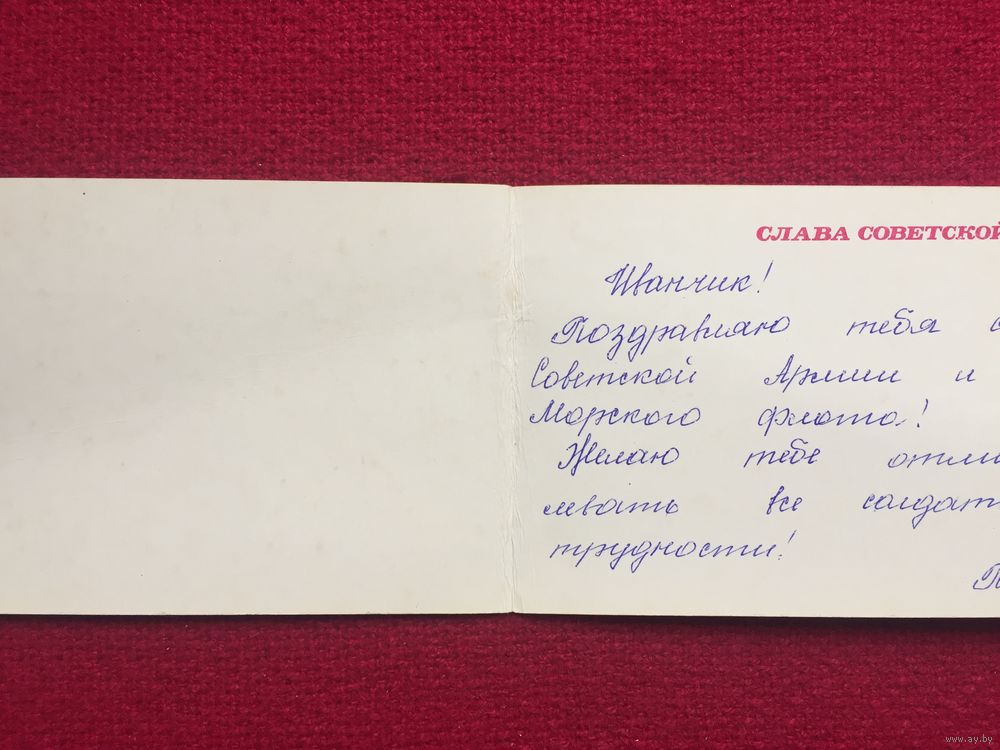 СЛАВА СОВЕТСКОЙ
Иванчик!
Поздравляю тебя с
Советской Армии и
Морского флота!
Желаю тебе отли
левать все солдат
трудности!
www.ay.by